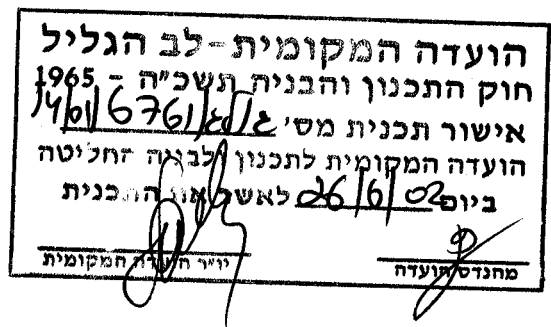 הועדה המקומית-לב הגליל
חוק התכנון והבניה תשכ"ה - 1965
אישור תכנית מס' ג/לג/6761/01/
הועדה המקומית לתכנון ולבניה החליטה
ביום 26/6/02 לאשר את התכנית
יו"ר הועדה המקומית
מהנדס הועדה